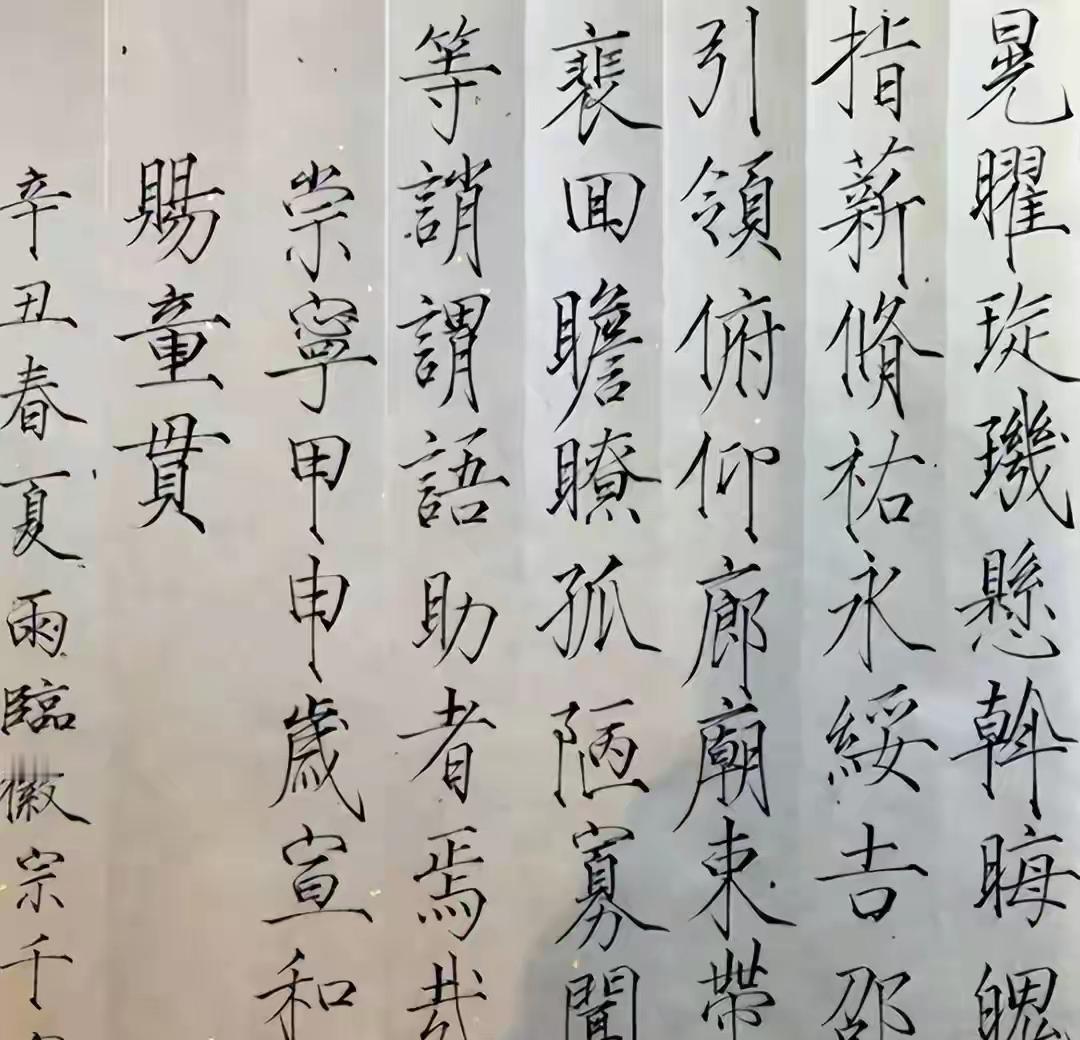 晃曜琁璣懸斡晦魄
指薪脩祐永綏吉邵
引領俯仰廊廟束帶
裵回瞻瞭孤陋寡聞
等誚謂語助者焉哉
崇寧甲申歲宣和
賜童貫
辛丑春夏雨臨徽宗千